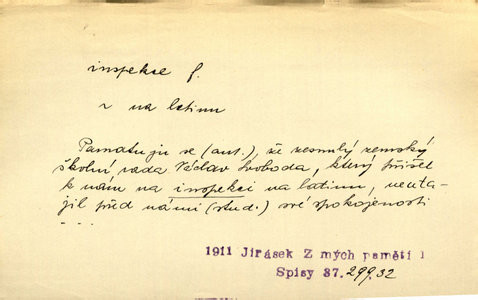 inspekce f.
~ na latinu
Pamatuju se (aut.), že zesnulý zemský
školní rada Václav Svoboda, který přišel
k nám na inspekci na latinu, neuta-
jil před námi (stud.) své spokojenosti
...
1911 Jirásek Z mých pamětí 1
Spisy 37.299,32